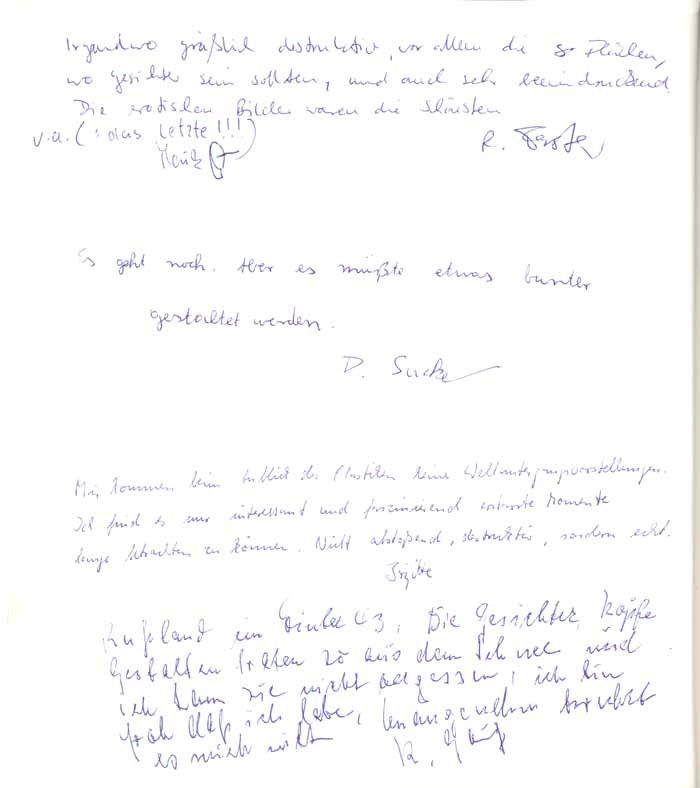 Irgendwo gräßlich destruktiv, vor allem die Flächen,
wo gesichter sein sollten, und auch sehr beeindruckend.
Die erotischen Bilder waren die schönsten
v.a. (: das Letzte!!!)
R.
Es geht noch. Aber es müßte etwas bunter
gestaltet werden.
D. Sucke
Mir kommen beim Anblick der Plastiken keine Weltuntergangsvorstellungen.
Ich find es nur interessant und faszinierend erstarrte Momente
lange betrachten zu können. Nicht abstoßend, destruktiv, sondern echt.
Brigitte
Rußland im Winter 43, Die Gesichter, Köpfe
Gestalten traten so aus dem Schnee und
ich kann sie nicht vergessen, ich bin
froh daß ich lebe, unangenehm berührt
es mich nicht
K.